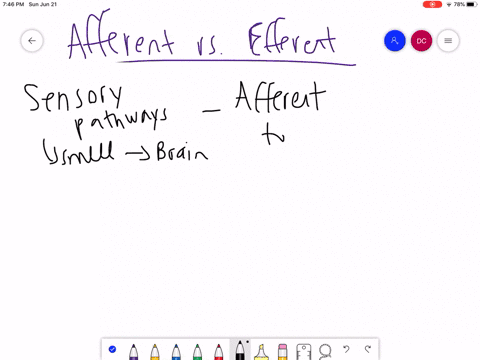 7:46 PM Sun Jun 21
78%
Afferent vs. Efferent
DC
Sensory pathways - Afferent
↳ smell → Brain